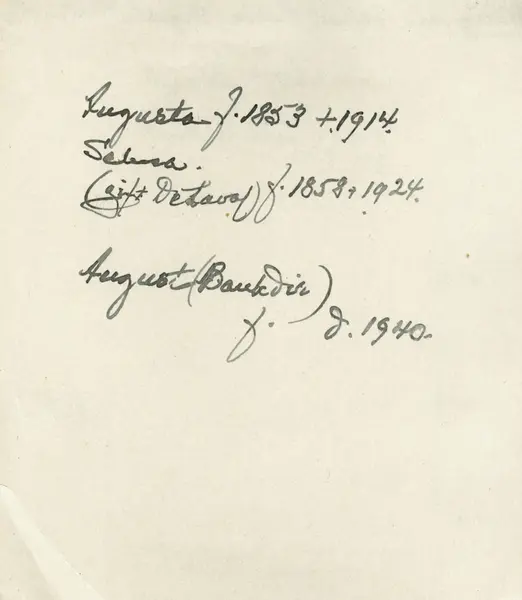 Augusta f. 1853 + 1914.
Selma.
(gift De Laval) f. 1858 + 1924.
August (Bankdir)
f. d. 1940.